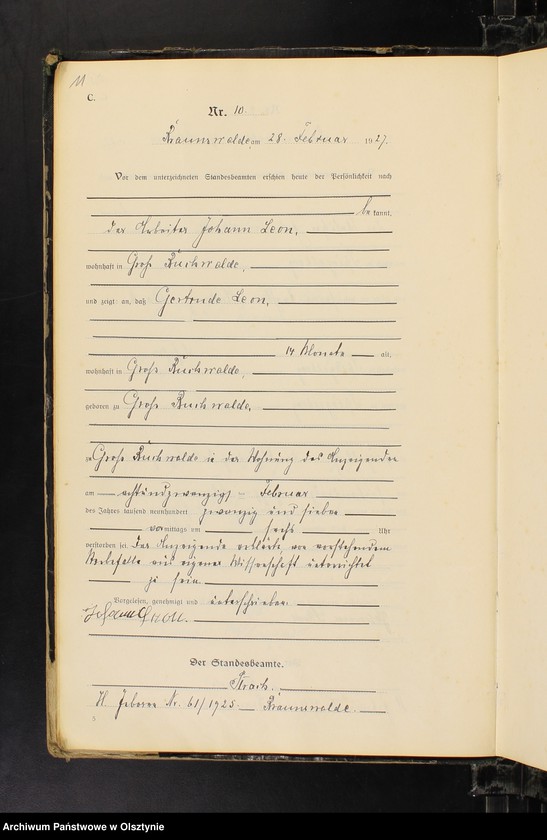 11
C.
Nr. 10.
Braunswalde, am 28. Februar 1927.
Vor dem unterzeichneten Standesbeamten erschien heute der Persönlichkeit nach
be kannt,
der Arbeiter Johann Leon,
wohnhaft in Groß Buchwalde,
und zeigte an, daß Gertrude Leon,
14 Monate alt,
wohnhaft in Groß Buchwalde,
geboren zu Groß Buchwalde,
zu Groß Buchwalde in der Wohnung des Anzeigenden
am achtundzwanzigsten Februar
des Jahres tausend neunhundert zwanzig und sieben
vormittags um sechs Uhr
verstorben sei. Der Anzeigende erklärte von vorstehendem
Sterbefalle aus eigener Wissenschaft unterrichtet
zu sein.
Vorgelesen, genehmigt und unterschrieben.
Johann Leon.
Der Standesbeamte.
Nr. 61/1925 Braunswalde.
Archiwum Państwowe w Olsztynie